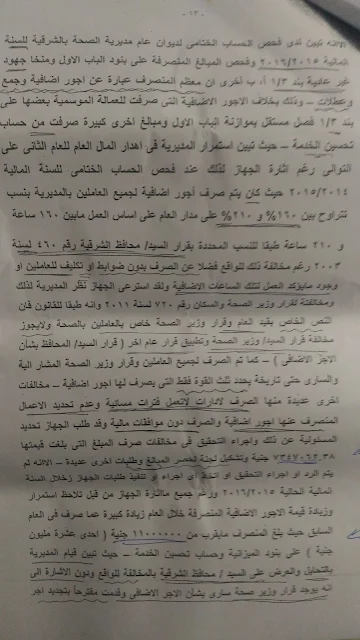 - ١٣ -
الا انه تبين لدى فحص الحساب الختامى لديوان عام مديرية الصحة بالشرقية للسنة
المالية ٢٠١٦/٢٠١٥ وفحص المبالغ المنصرفة على بنود الباب الاول ومنها جهود
غير عادية بند ١/٣ أ، ب أخرى ان معظم المنصرف عبارة عن اجور اضافية وجمع
وعطلات – وذلك بخلاف الاجور الاضافية التى صرفت للعمالة الموسمية بعضها على
بند ١/٣ فصل مستقل بموازنة الباب الاول ومبالغ اخرى كبيرة صرفت من حساب
تحسين الخدمة – حيث تبين استمرار المديرية فى اهدار المال العام للعام الثانى على
التوالى رغم اثارة الجهاز لذلك عند فحص الحساب الختامى للسنة المالية
٢٠١٥/٢٠١٤ حيث كان يتم صرف أجور إضافية لجميع العاملين بالمديرية بنسب
تتراوح بين ١٦٠% و ٢١٠% على مدار العام على اساس العمل مابين ١٦٠ ساعة
و ٢١٠ ساعة طبقا للنسب المحددة بقرار السيد/ محافظ الشرقية رقم ٤٦٠ لسنة
٢٠٠٣ رغم مخالفة ذلك للواقع فضلا عن الصرف بدون ضوابط او تكليف للعاملين او
وجود مايؤكد العمل لتلك الساعات الاضافية ولقد استرعى الجهاز نظر المديرية لذلك
ومخالفتة لقرار وزير الصحة والسكان رقم ٧٢٠ لسنة ٢٠١١ وانه طبقا للقانون فان
النص الخاص يقيد العام وقرار وزير الصحة خاص بالعاملين بالصحة ولايجوز
مخالفة قرار السيد/ وزير الصحة وتطبيق قرار عام اخر ( قرار السيد/ المحافظ بشأن
الاجر الاضافى ) – كما تم الصرف لجميع العاملين وقرار وزير الصحة المشار الية
والسارى حتى تاريخة يحدد ثلث القوة فقط التى يصرف لها اجور اضافية – مخالفات
اخرى عديدة منها الصرف لادارات لاتعمل فترات مسائية وعدم تحديد الاعمال
المنصرف عنها اجور اضافية والصرف دون موافقات مالية وقد طلب الجهاز تحديد
المسئولية عن ذلك واجراء التحقيق فى مخالفات صرف المبلغ التى بلغت قيمتها
٧٣٤٧٠٦٣.٣٨ جنية وتشكيل لجنة لحصر المبالغ وطلبات اخرى عديدة – الاانه لم
يتم الرد او اجراء التحقيق او اتخاذ أى اجراء او تنفيذ طلبات الجهاز وخلال السنة
المالية الحالية ٢٠١٦/٢٠١٥ ورغم جميع مااثارة الجهاز من قبل تلاحظ استمرار
وزيادة قيمة الاجور الاضافية المنصرفة خلال العام زيادة كبيرة عما صرف فى العام
السابق حيث بلغ المنصرف مايقرب من ١١٠٠٠٠٠٠ جنية ( احدى عشرة مليون
جنية ) على بنود الميزانية وحساب تحسين الخدمة – حيث تبين قيام المديرية
بالتحايل والعرض على السيد / محافظ الشرقية بالمخالفة للواقع ودون الاشارة الى
انه يوجد قرار وزير صحة سارى بشأن الاجر الاضافى وقدمت مقترحاً بتجديد اجر